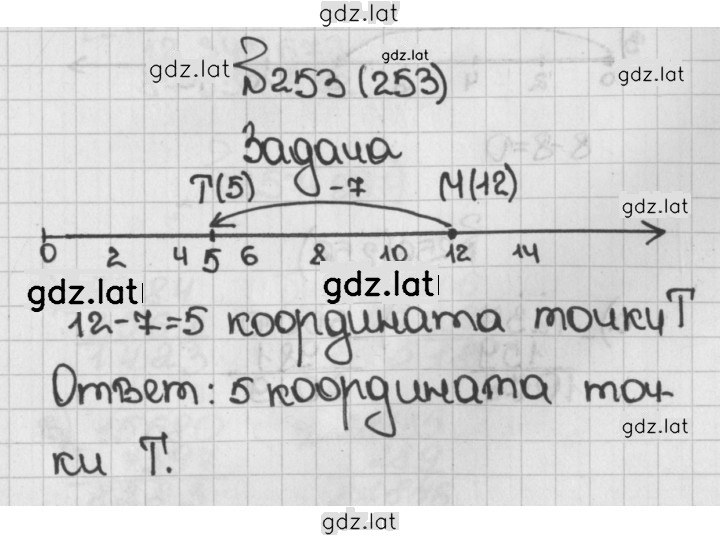 gdz.lat
gdz.lat
gdz.lat
№253 (253)
gdz.lat
Задача
T(5) -7 M(12)
gdz.lat
0 2 4 5 6 8 10 12 14
gdz.lat gdz.lat
12-7=5 координата точки T
Ответ: 5 координата точ-
ки T.
gdz.lat
gdz.lat